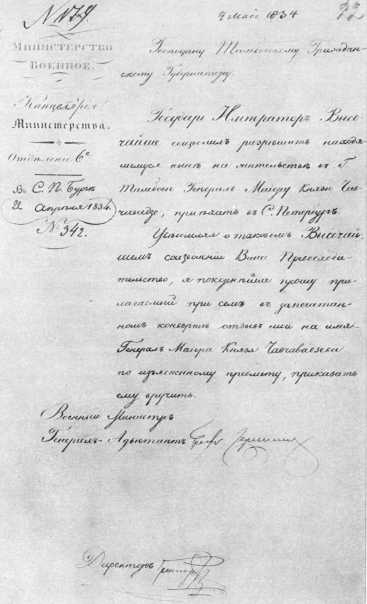 9 Мая 1834
МИНИСТЕРСТВО
ВОЕННОЕ.
Канцелярія
Министерства.
Отдѣленіе 6е
Въ С. П. Бургѣ
Апрѣля 1834.
№ 342.
Господину Тамбовскому Граждан-
скому Губернатору.
Государь Императоръ Высо-
чайше соизволилъ разрѣшить находя-
щемуся нынѣ на жительствѣ въ Г.
Тамбовѣ Генералъ Маіору Князю Чав-
чавадзе, пріѣхать въ С. Петербургъ.
Увѣдомляя о таковомъ Высочай-
шемъ соизволеніи Ваше Превосходи-
тельство, я покорнѣйше прошу при-
лагаемый при семъ въ запечатан-
номъ конвертѣ отзывъ мой на имя
Генералъ Маіора Князя Чавчавадзева
по изъясненному предмету, приказать
ему вручить.
Военный Министръ
Генералъ-Адъютантъ Графъ Чернышевъ
Директоръ